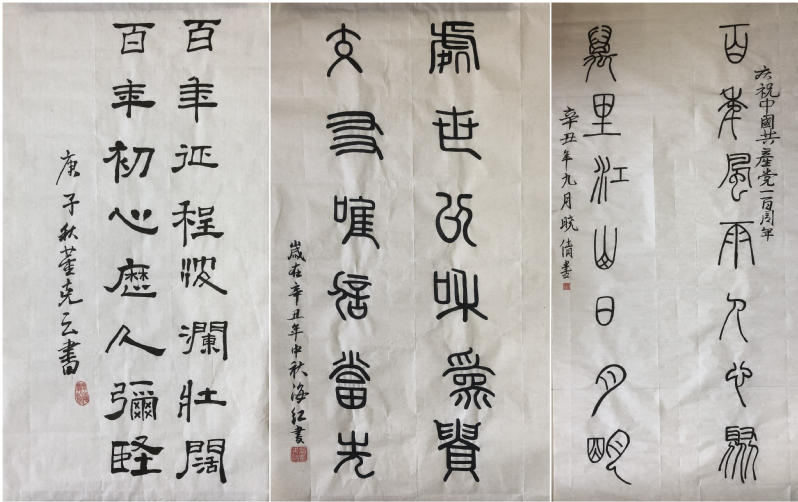 百年征程波瀾壯闊
百年初心歷久彌堅
庚子秋董克云書
處世以和爲貴
交友唯信當先
歲在辛丑年中秋海紅書
慶祝中國共產党一百周年
百年風雨人心聚
萬里江山日月明
辛丑年九月晓倩書